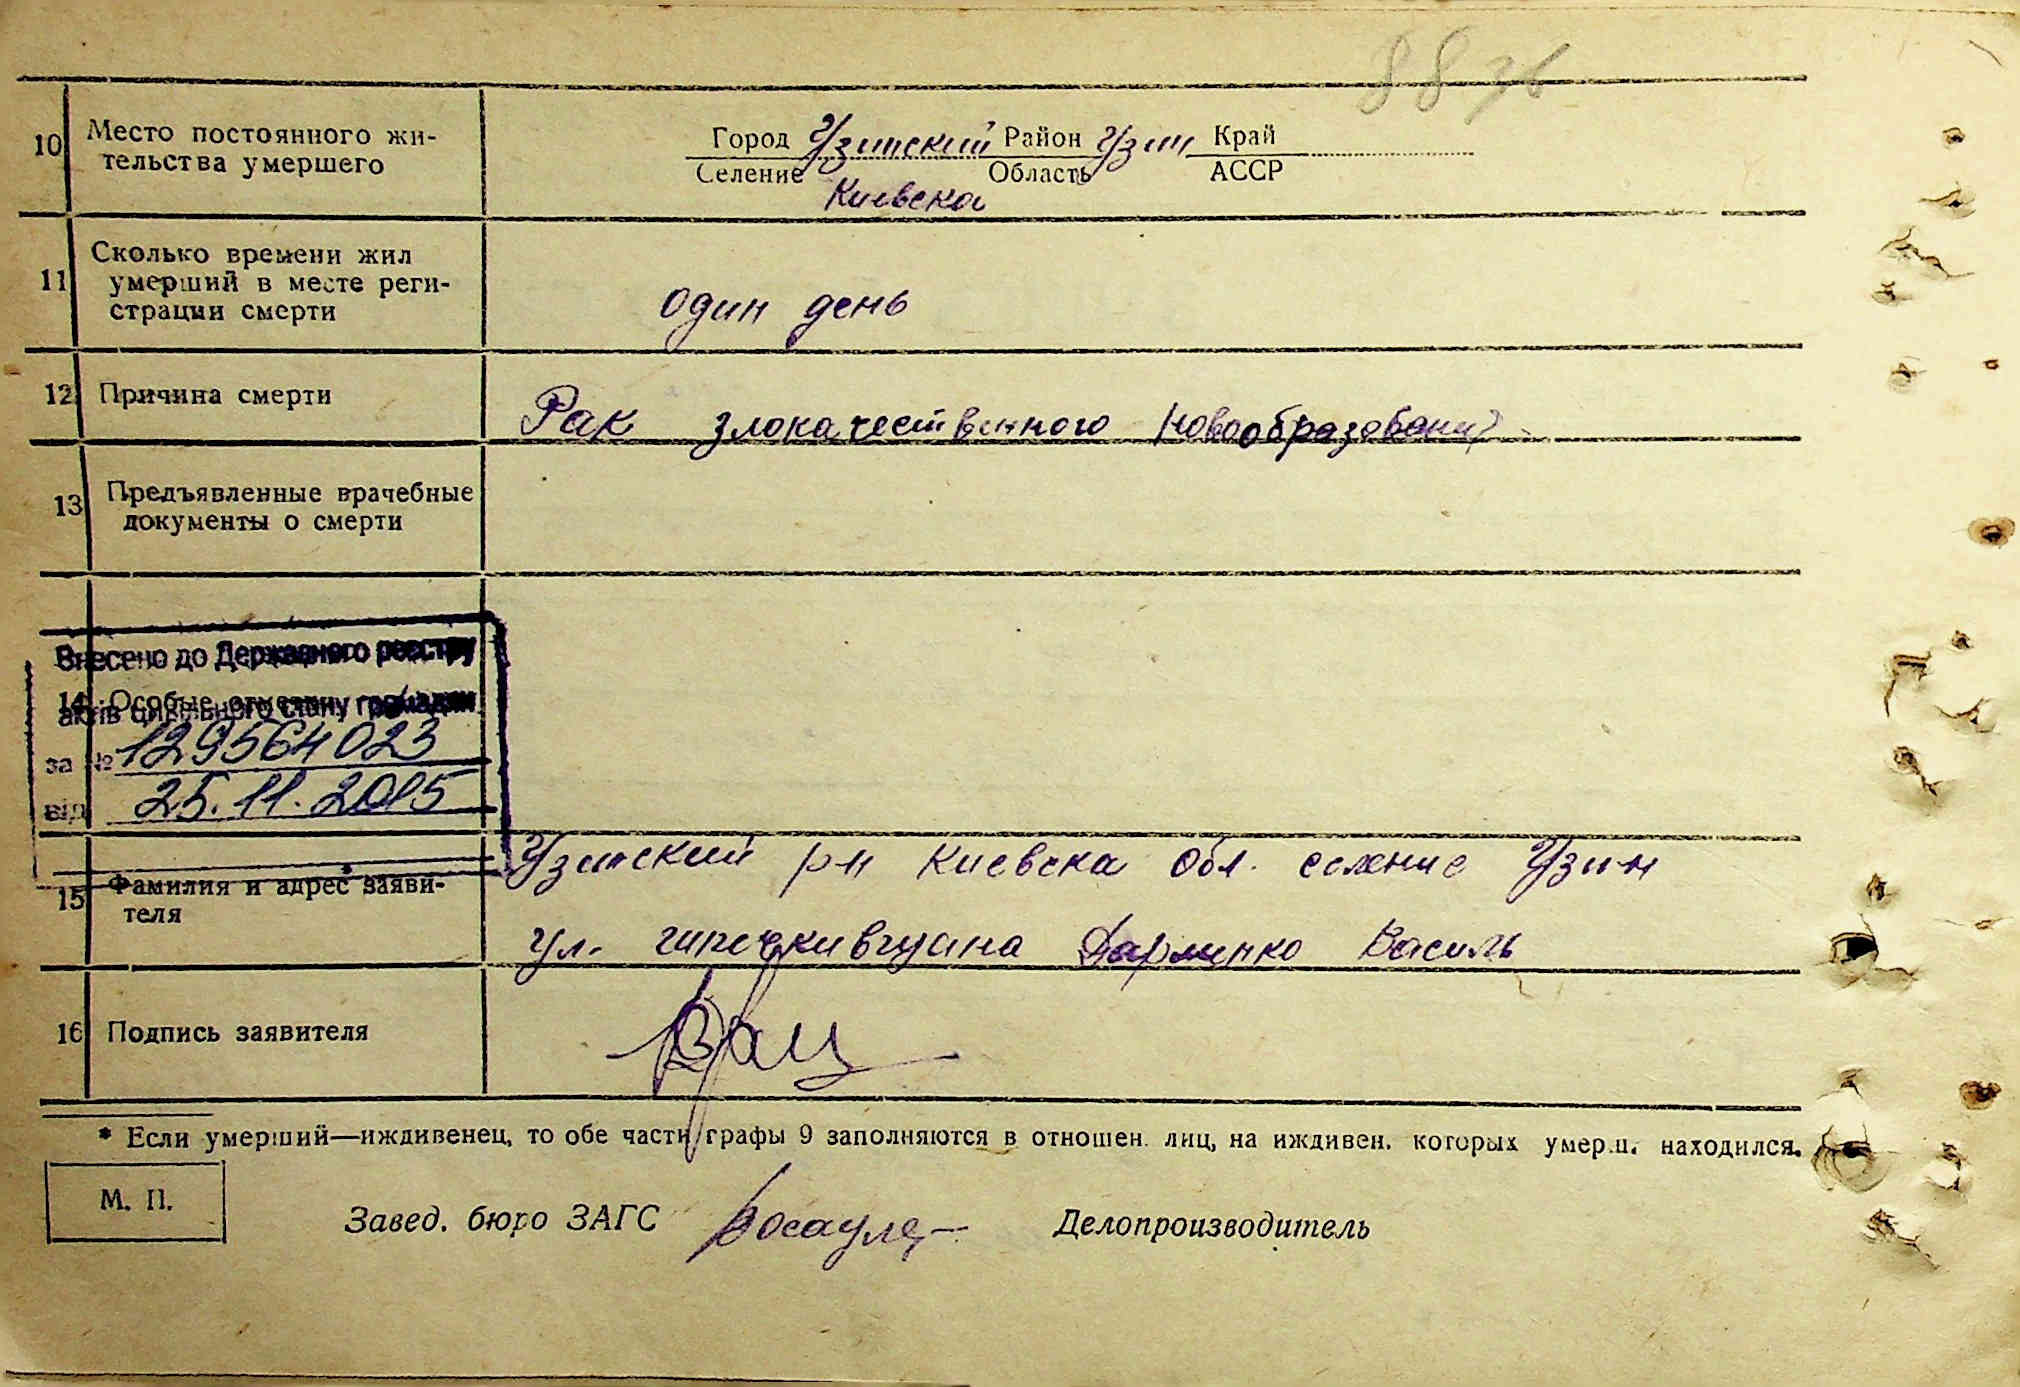 88 36
10 Место постоянного жи-
тельства умершего
Город Узинский Район Узин Край
Селение Область АССР
Киевска
11 Сколько времени жил
умерший в месте реги-
страции смерти
один день
12 Причина смерти
Рак злокачественного новообразования
13 Предъявленные врачебные
документы о смерти
Внесено до Державного реєстру
14 Особые отметки
актів цивільного стану громадян
за № 129564023
від 25.11.2015
Узинский р-н Киевска обл. селение Узин
15 Фамилия и адрес заяви-
теля
ул. Василь
16 Подпись заявителя
* Если умерший—иждивенец, то обе части графы 9 заполняются в отношен. лиц, на иждивен. которых умерш. находился.
М. П.
Завед. бюро ЗАГС Делопроизводитель